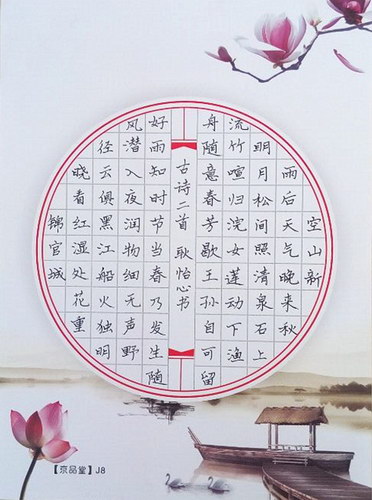 空山新
雨后天气晚来秋
明月松间照清泉石上
流竹喧归浣女莲动下渔
舟随意春芳歇王孙自可留
古诗二首 耿怡心书
好雨知时节当春乃发生随
风潜入夜润物细无声野
径云俱黑江船火独明
晓看红湿处花重
锦官城
【京品堂】J8